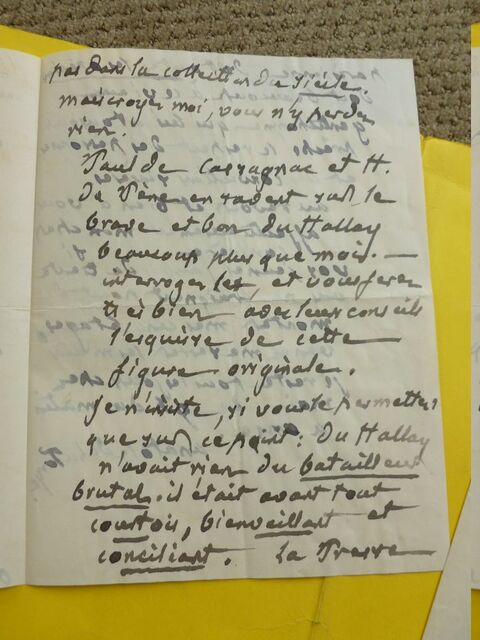 pas dans la collection du siècle.
mais croyez moi, vous n'y perdez
rien.
Paul de Cassagnac et H.
de Pène en savent sur le
brave et bon du Hallay
beaucoup plus que moi. —
interrogez les, et vous ferez
très bien avec leurs conseils
l'esquisse de cette
figure originale.
Je n'insiste, si vous le permettez
que sur ce point : du Hallay
n'avait rien du batailleur
brutal. il était avant tout
courtois, bienveillant et
conciliant. La Presse